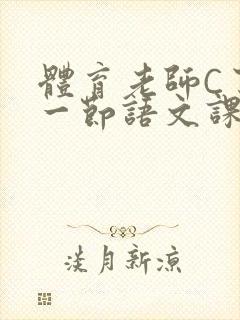 體育老師C
一節語文課
淡月新涼